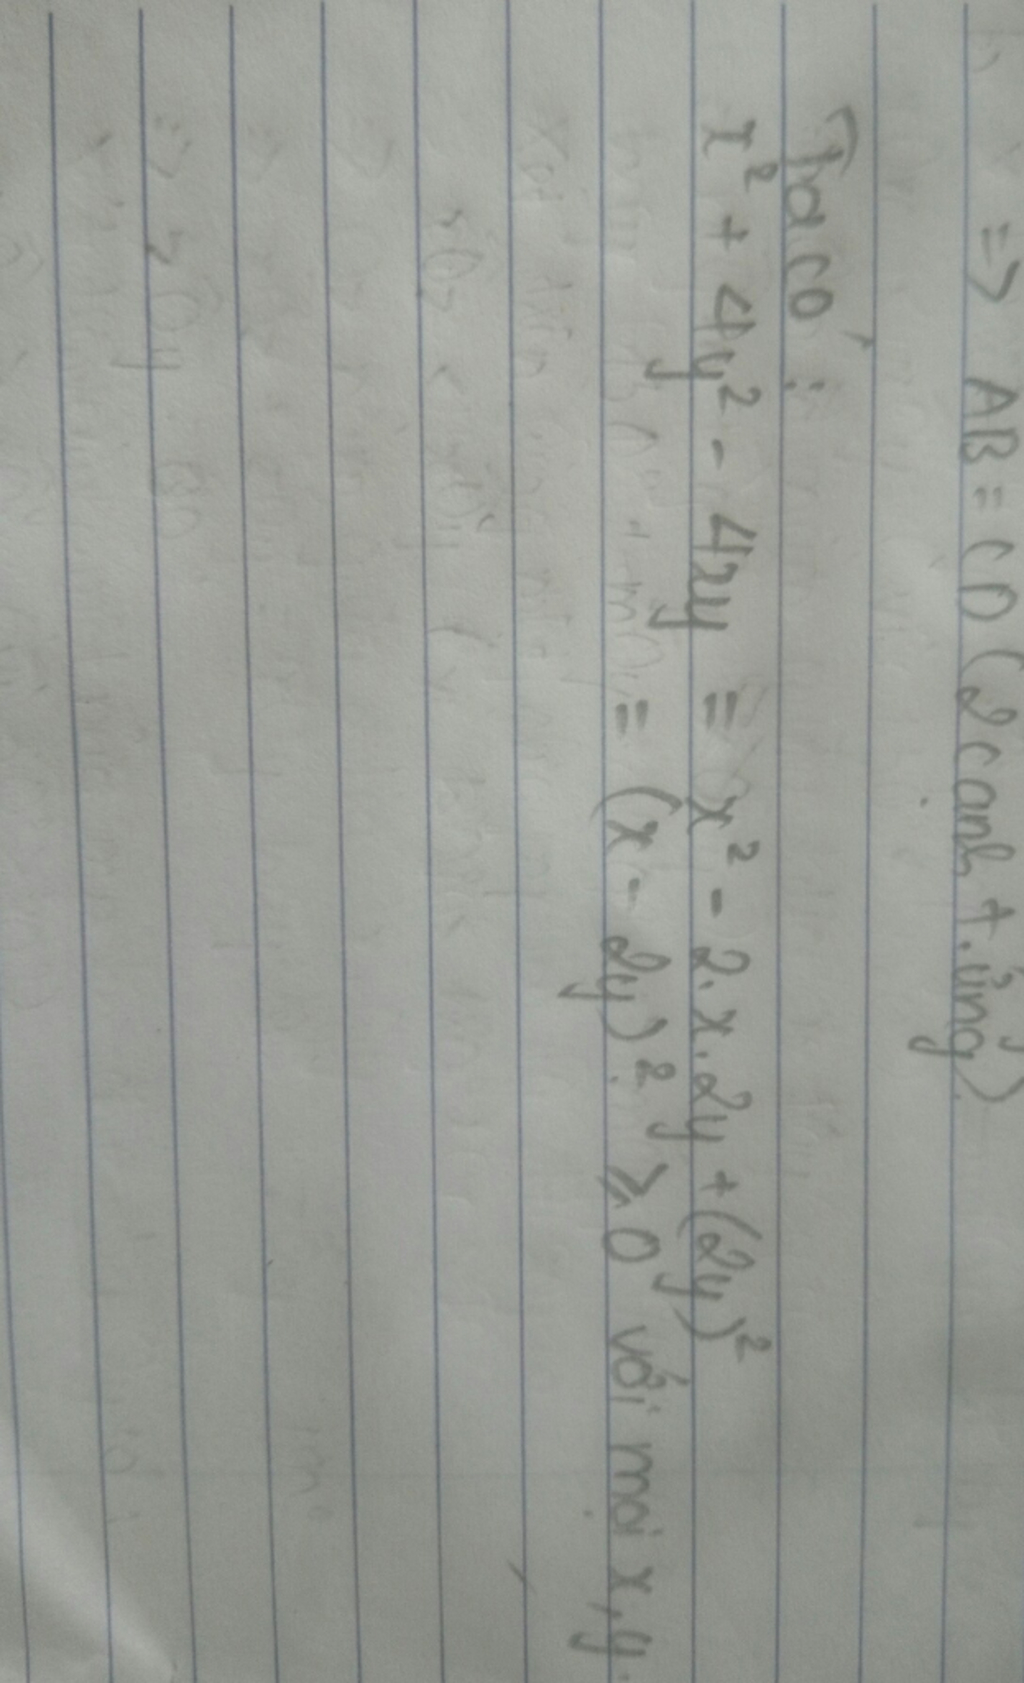 => AB = CD (2 cạnh t.ứng)
Ta có :
x² + 4y² - 4xy = x² - 2.x.2y + (2y)²
= (x - 2y)² ≥ 0 với mọi x, y.